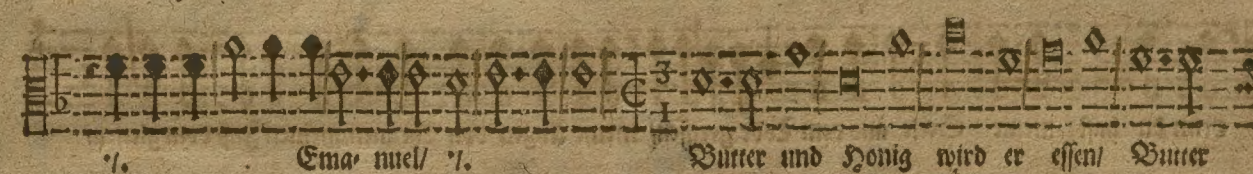 ·/. Ema- nuel/ ·/. Butter und Honig wird er essen/ Butter